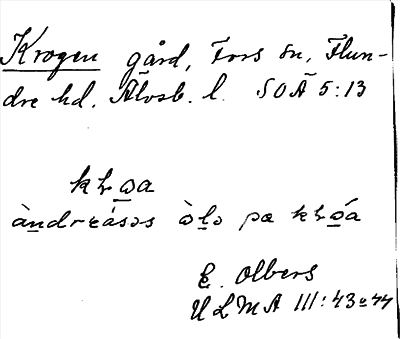 Krogen gård, Fors sn, Flun-
dre hd. Älvsb. l. SOÄ 5:13
krɷa
àndreásəs ɷ̀lə pæ krɷ́a
E. Olbers
ULMA III:43 o 44